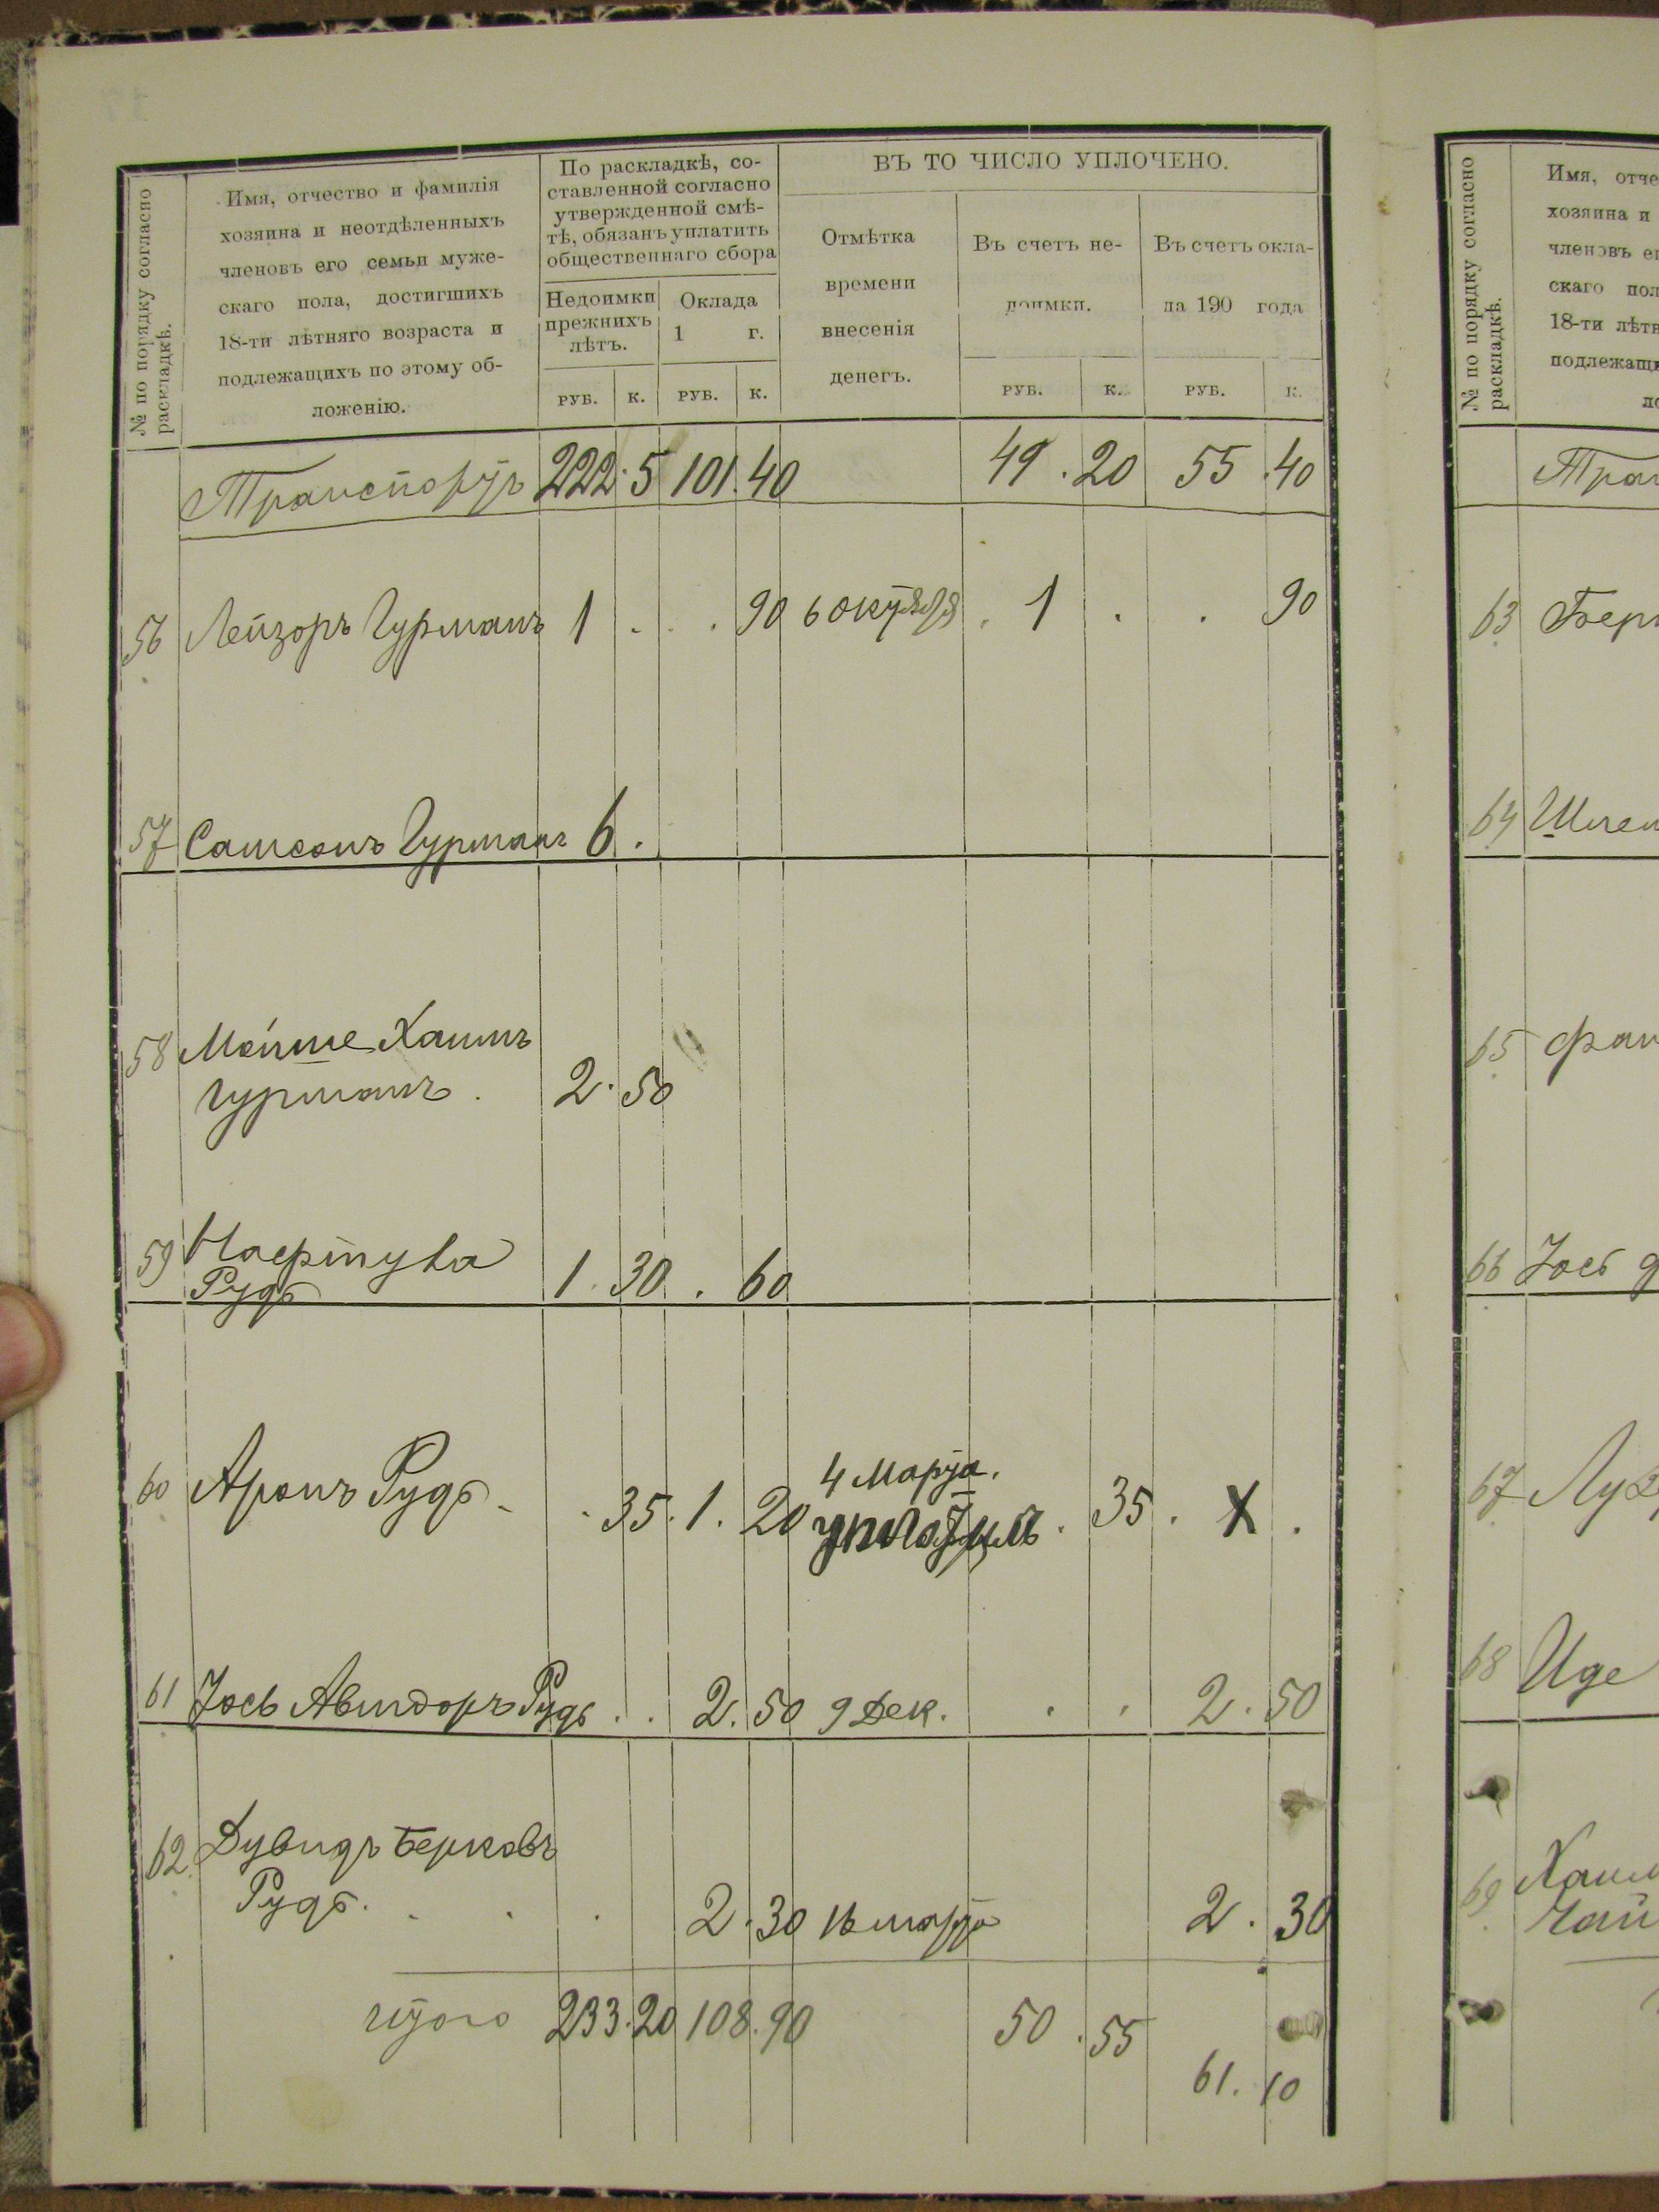 № по порядку согласно
раскладкѣ.
Имя, отчество и фамилія
хозяина и неотдѣленныхъ
членовъ его семьи муже-
скаго пола, достигшихъ
18-ти лѣтняго возраста и
подлежащихъ по этому об-
ложенію.
По раскладкѣ, со-
ставленной согласно
утвержденной смѣ-
тѣ, обязанъ уплатить
общественнаго сбора
Недоимки
прежнихъ
лѣтъ.
Оклада
1 г.
ВЪ ТО ЧИСЛО УПЛОЧЕНО.
Отмѣтка
времени
внесенія
денегъ.
Въ счетъ не-
доимки.
Въ счетъ окла-
да 190 года
РУБ. К. РУБ. К. РУБ. К. РУБ. К.
Транспортъ 222.5 101.40 49.20 55.40
56 Лейзоръ Гурманъ 1 . . . 90 6 октября . 1 . . 90
57 Самсонъ Гурманъ 6 .
58 Мойше Хаимъ
Гурманъ . 2.50
59
Рудь 1.30 . 60
60 Аронъ Рудь . 35.1.20 4 Марта. . 35 . X .
уплатилъ
61 Іось Авигдоръ Рудь . . 2.50 9 Дек. . . 2.50
62 Дувидъ Берковъ
Рудь. . . . 2.30 16 марта 2.30
итого 233.20 108.90 50.55
61.10
№ по порядку согласно
раскладкѣ.
Имя, отче
хозяина и
членовъ ег
скаго пол
18-ти лѣтн
подлежащи
ло
Тран
63 Бер
64 Шлем
65
66 Іось
67
68 Иде
69 Хаим